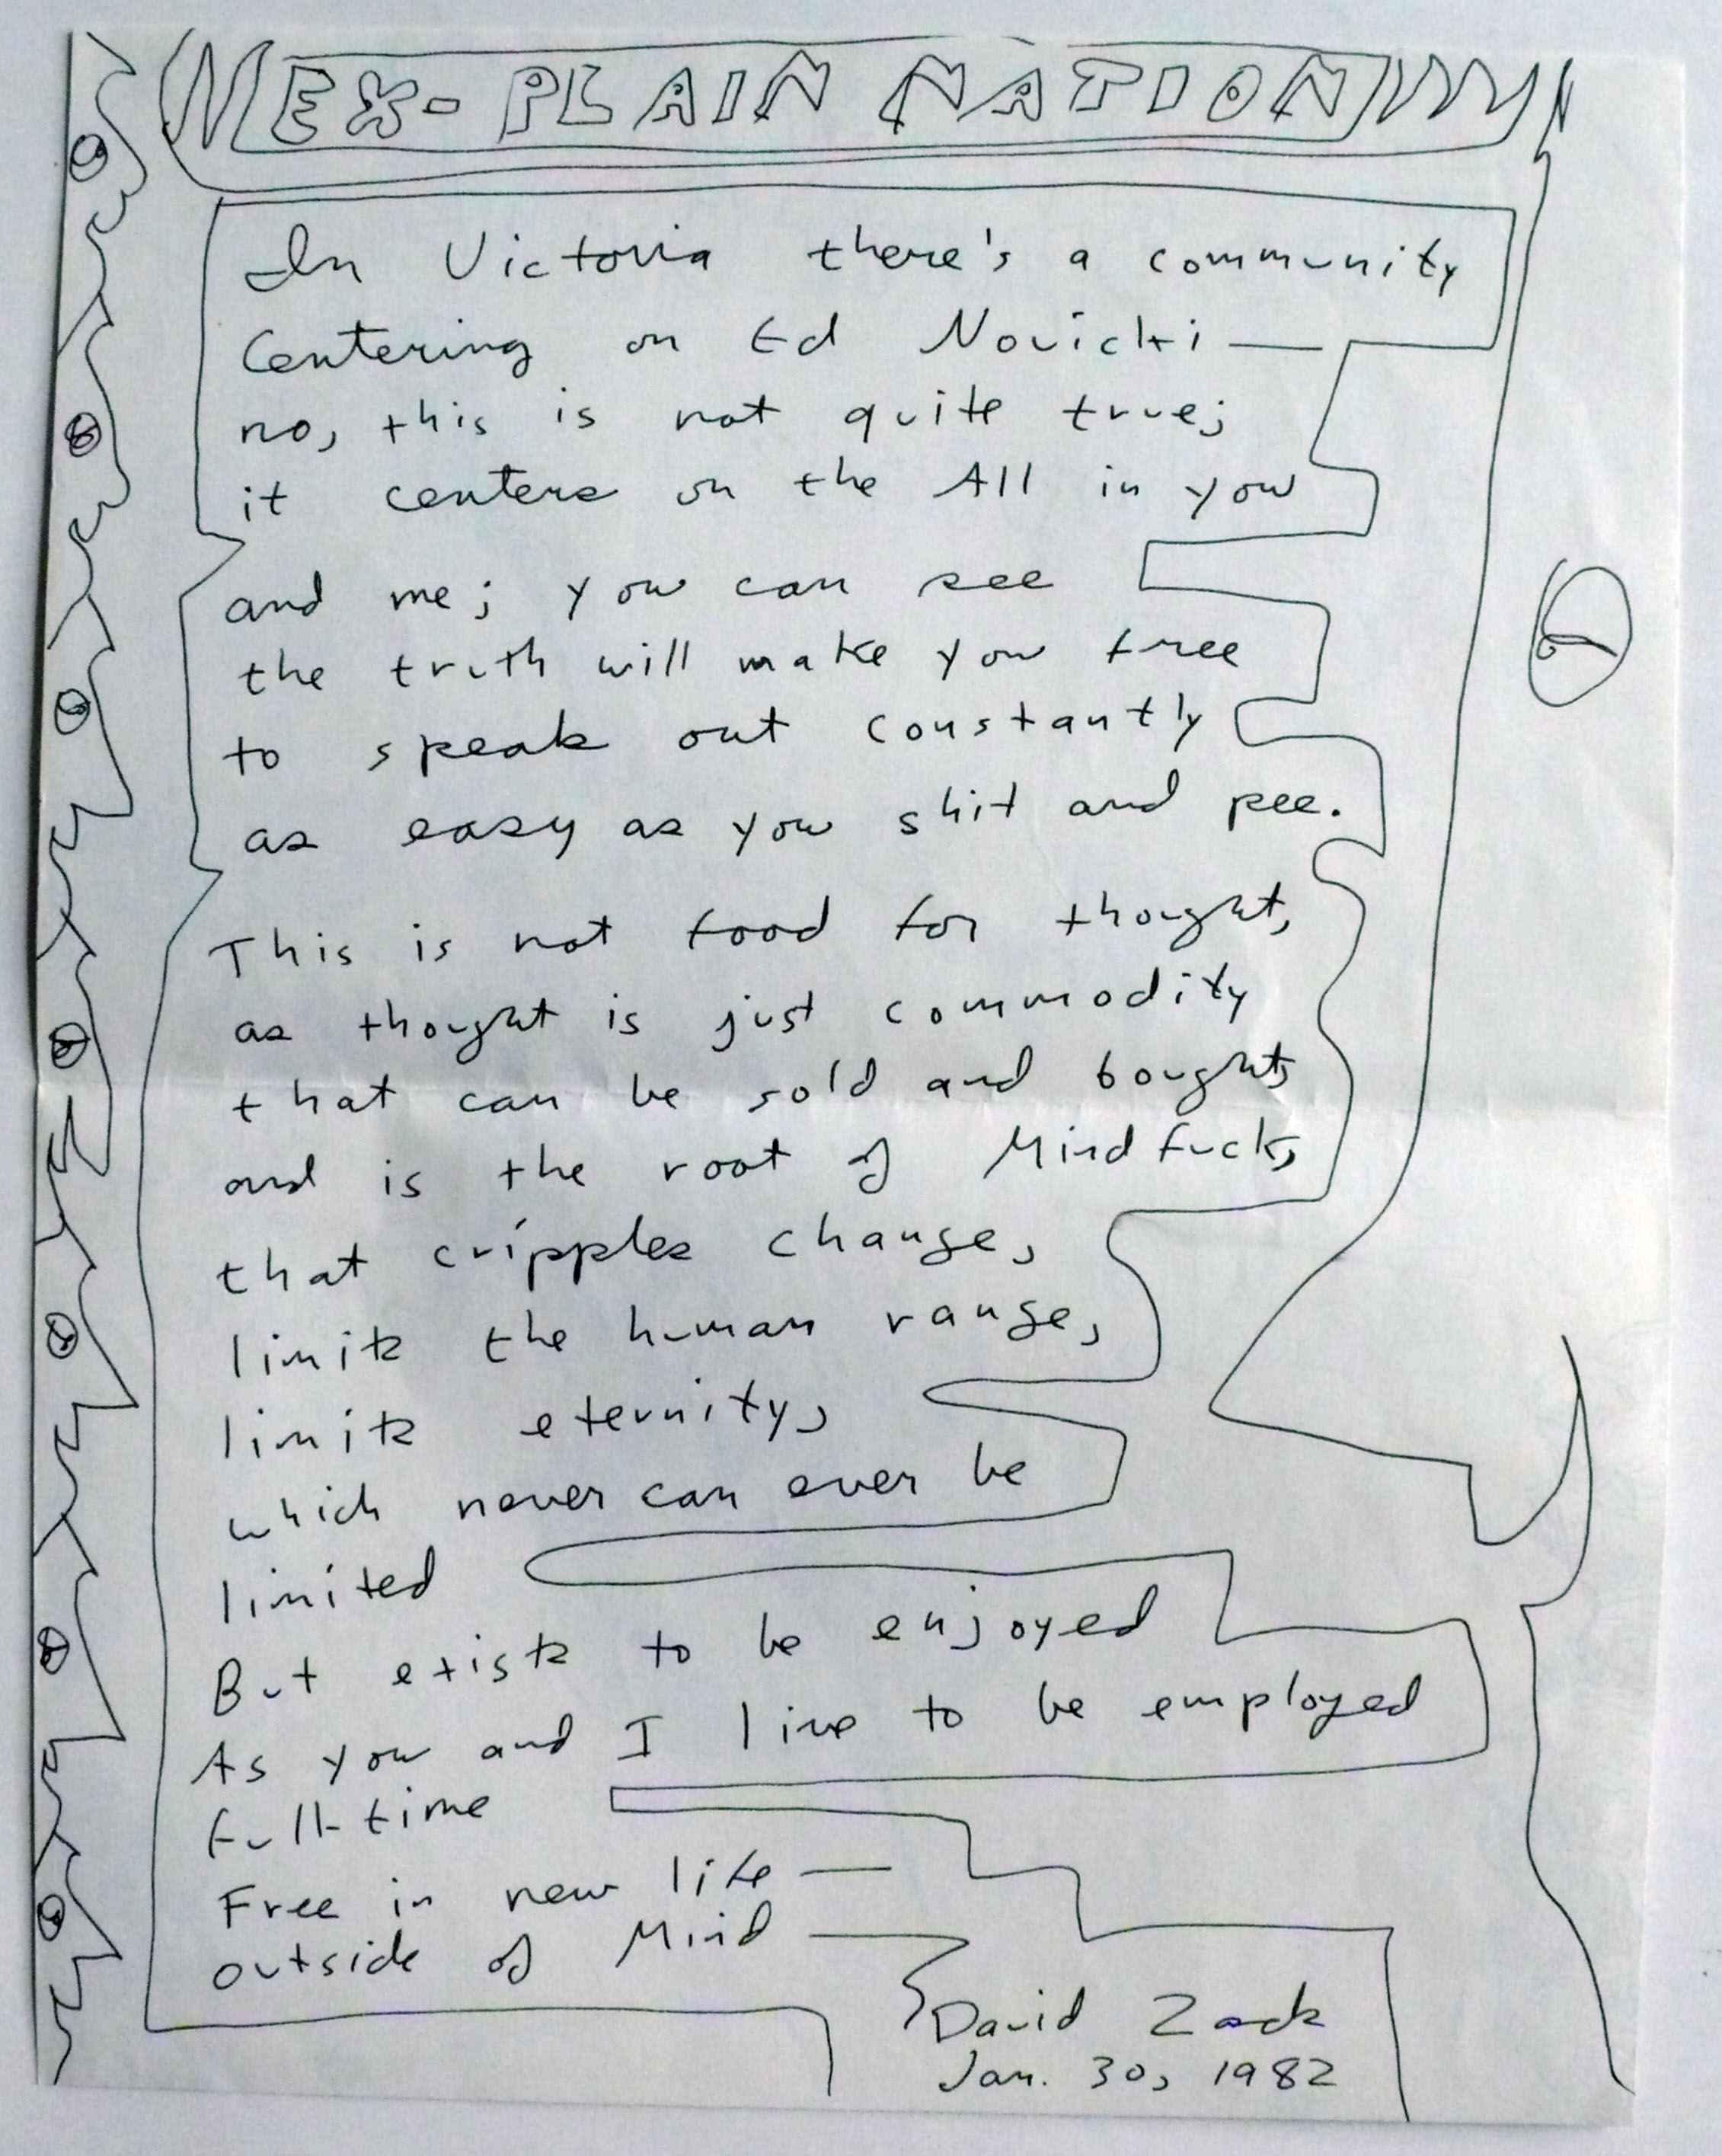 EX-PLAIN NATION
In Victoria there's a community
Centering on Ed Novicki —
no, this is not quite true;
it centers on the All in you
and me; you can see
the truth will make you free
to speak out constantly
as easy as you shit and pee.
This is not food for thought,
as thought is just commodity
that can be sold and bought,
and is the root of Mindfuck,
that cripples change,
limits the human range,
limits eternity,
which never can ever be
limited
But exists to be enjoyed
As you and I live to be employed
full-time
Free in new life —
outside of Mind —
David Zack
Jan. 30, 1982